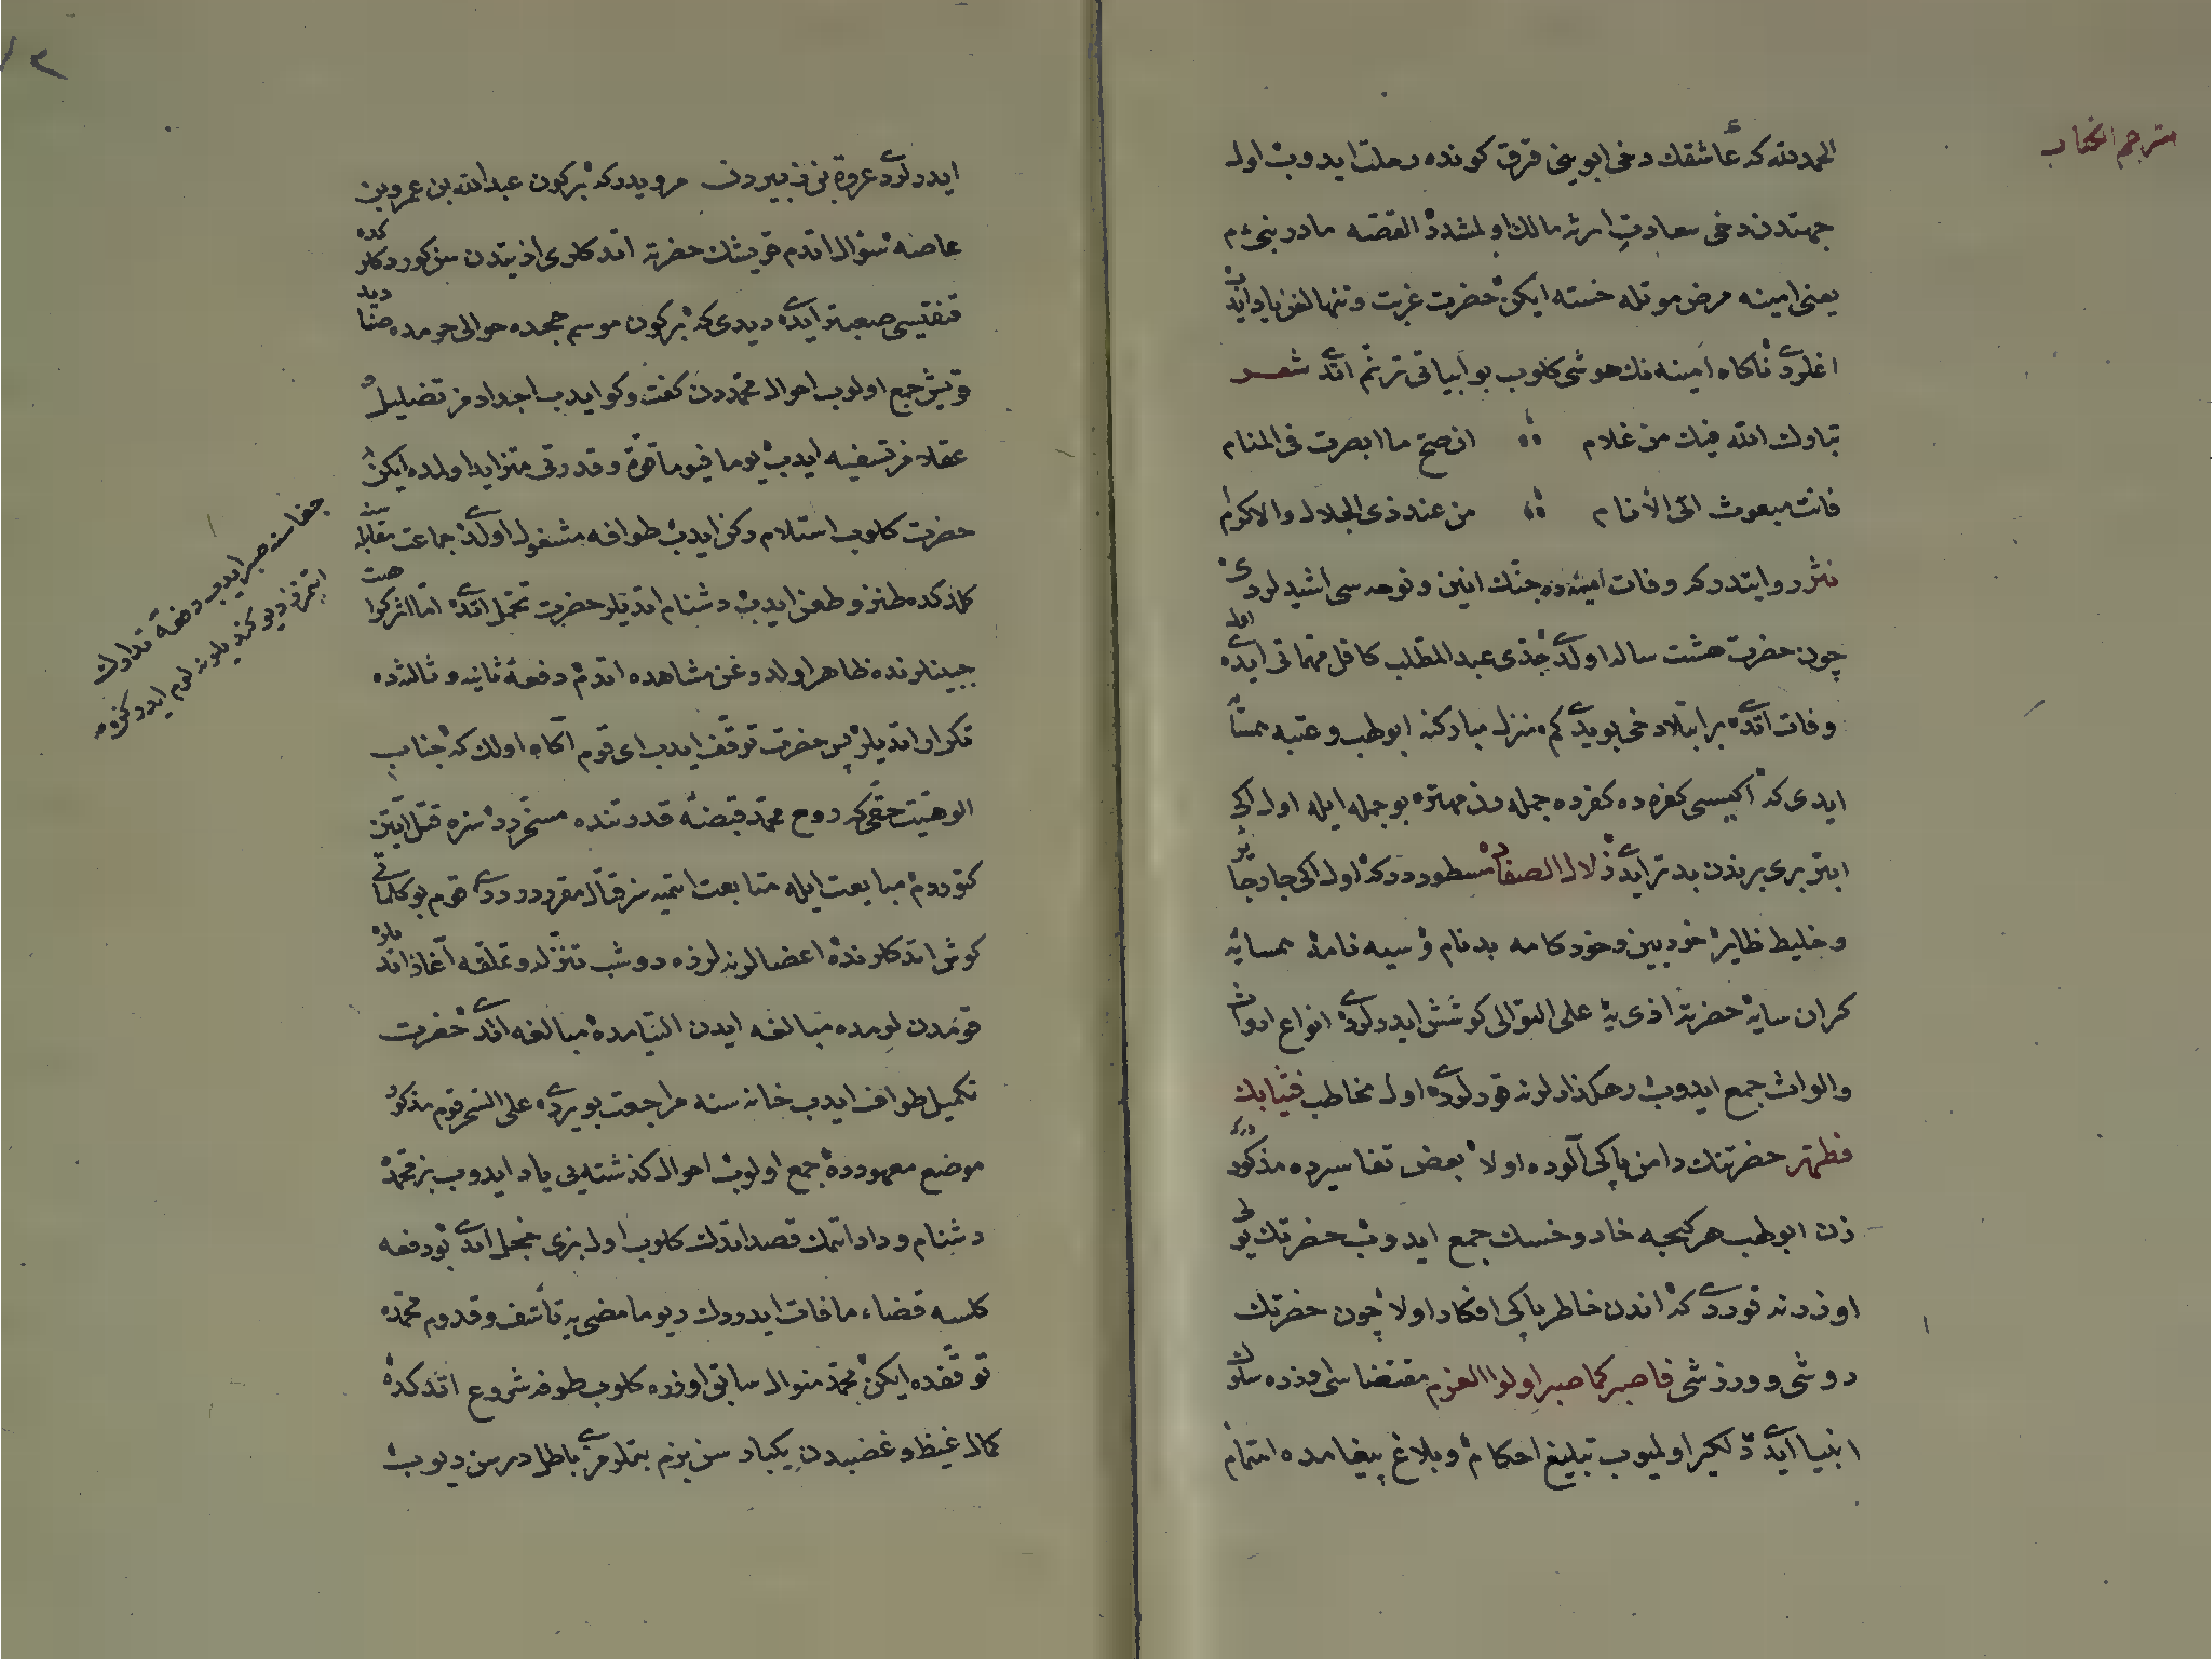 مترجم الكتاب
الحمدلله كه عاشقك دخى ابوينى قرق كونده رحلت ايدوب اول
جهتدن دخى سعادتِ ارثه مالك اولمشدر القصه مادر نبىء م
يعنى امينه مرض موتله خسته ايكن حضرت غربت وتنهالغن ياد ايدب
اغلردى ناكاه امينه نك هوشى كلوب بو ابياتى ترنم اتدى شعر
تبارك الله فيك من غلام ان صح ما ابصرت فى المنام
فانت مبعوث الى الأنام من عند ذى الجلال والاكرام
نثر روايتدر كه وفات امينه ده جنك انين ونوحه سى اشيدلردى
چون حضرت هشت ساله اولدى جدى عبد المطلب كافل مهماتى ايدى اول
وفات اتدى بر ابتلا دخى بويدى كم منزل مباركنه ابولهب وعتبه همسا
ايدى كه اكيسى كفره ده كفرده جمله دن مهتره بو جمله ايله اول اكى
ابتر برى برندن بدتر ايدى زلال الصفاده مسطوردر كه اول اكى جار جائر
وخليط ظاير خودبين وخودكامه بدنام وسيه نامه همسايه
كران سايه حضرته اذى يه على التوالى كوشش ايدرلردى انواع ارواث
والواث جمع ايدوب رهكذارلرنه قورلردى اول مخاطب فثيابك
فطهر حضرتنك دامن پاكى آلوده اولا بعض تفاسيرده مذكوردر كه
زن ابولهب هر كيجه خار وخسك جمع ايدوب حضرتك يولى
اوزرنه قوردى كه اندن خاطر پاكى افكار اولا چون حضرتك
روشى وورزشى فاصبر كما صبر اولوا العزم مقتضاسى اوزره سلوك
انبيا ايدى دلكير اولميوب تبليغ احكام وبلاغ پيغامده اهتمام
ايدرلردى عروة بن زبيردن مرويدر كه بر كون عبدالله بن عمرو بن
عاصه سؤال اتدم قريشك حضرته اتدكلرى اذيتدن سن كوردكلركده
قنقيسى صعبتر ايدى ديدى كه بر كون موسم حجده حوالى حرمده صناديد
قريش جمع اولوب احوال محمددن كفت وكو ايدب اجدادمز تضليل
عقلامز تسفيه ايدب يوما فيوما قوة وقدرتى متزايد اولمده ايكن
حضرت كلوب استلام ركن ايدب طوافه مشغول اولدى جماعت مقابلسنه
كلدكده طنز وطعن ايدب دشنام اتديلر حضرت تحمل اتدى اما اثر كراهت
جبينلرنده ظاهر اولدوغن مشاهده اتدم دفعهٔ ثانيه وثالثه ده
تكرار اتديلر پس حضرت توقف ايدب اى قوم آكاه اولك كه جناب
الوهيت حقى كه روح محمد قبضهٔ قدرتنده مسخردر سزه قتل ايتين
كتوردم مبايعت ايله متابعت اتميه سز قتال مقرردر ددى قوم بو كلماتى
كوش اتدكلرنده اعضالرنه لرزه دوشب تنزل وتملقه آغاز اتديلر
قومدن لومده مبالغه ايدن التيامده مبالغه اتدى حضرت
تكميل طواف ايدب خانه سنه مراجعت بويردى على السحر قوم مذكور
موضع معهودده جمع اولوب احوال كذشته يى ياد ايدوب بز محمده
دشنام وداد اتمك قصد اتدك كلوب اول بزى خجل اتدى بو دفعه
كلسه قضاء مافات ايدرودك ديو مامضى يه تأسف وقدوم محمده
توقفده ايكن محمد منوال سابق اوزره كلوب طوفه شروع اتدكده
كمال غيظ وغضبدن يكبار سن بزم بتلرمزى باطل درسن ديوب
جفاسنه صبر ايدوب دفعهٔ تدارك